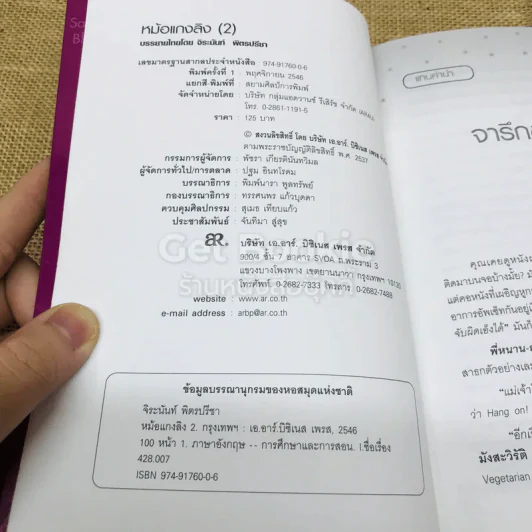 หม้อแกงลิง (2)
บรรยายไทยโดย จิระนันท์ พิตรปรีชา
เลขมาตรฐานสากลประจำหนังสือ : 974-91760-0-6
พิมพ์ครั้งที่ 1 : พฤศจิกายน 2546
แยกสี-พิมพ์ที่ : สยามศิลป์การพิมพ์
จัดจำหน่ายโดย : บริษัท กลุ่มแอดวานซ์ รีเสิร์ช จำกัด
โทร. 0-2861-1191-5
ราคา : 125 บาท
© สงวนลิขสิทธิ์ โดย บริษัท เอ.อาร์. บิซิเนส เพรส
ตามพระราชบัญญัติลิขสิทธิ์ พ.ศ. 2537
กรรมการผู้จัดการ : พัชรา เกียรตินันทวิมล
ผู้จัดการทั่วไป/การตลาด : ปฐม อินทโรดม
บรรณาธิการ : พิมพ์นารา พูลทรัพย์
กองบรรณาธิการ : ทรรศนพร แก้วบุดดา
ควบคุมศิลปกรรม : สุเมธ เทียบแก้ว
ประชาสัมพันธ์ : จันทิมา สู่สุข
ar. บริษัท เอ.อาร์. บิซิเนส เพรส จำกัด
900/4 ชั้น 7 อาคาร SVOA ถ.พระราม 3
แขวงบางโพงพาง เขตยานนาวา กรุงเทพฯ 10120
โทรศัพท์. 0-2682-7333 โทรสาร 0-2682-7488
website : www.ar.co.th
e-mail address : arbp@ar.co.th
Get Bookie
ร้านหนังสือ
ข้อมูลบรรณานุกรมของหอสมุดแห่งชาติ
จิระนันท์ พิตรปรีชา
หม้อแกงลิง 2. กรุงเทพฯ : เอ.อาร์.บิซิเนส เพรส, 2546
100 หน้า 1. ภาษาอังกฤษ -- การศึกษาและการสอน. I.ชื่อเรื่อง
428.007
ISBN 974-91760-0-6
แทนคำนำ
จารึก
คุณเคยดูหนัง
ติดมาบนจอบ้างมั้ย?
แต่คอหนังที่เผอิญหู
อาการอัพเซ็ทกันอยู่
จับผิดเอ็งได้" มันก็
พี่หนาน-
สาธกตัวอย่างเล
"แม่เจ้า
ว่า Hang on!
"อีกเ
มังสะวิรัติ
Vegetarian